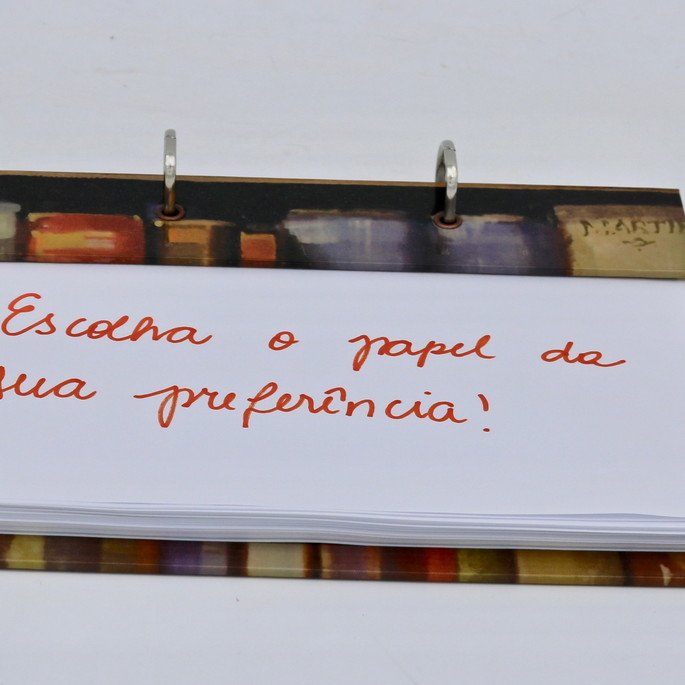 MARTIN
Escolha o papel da
sua preferência!